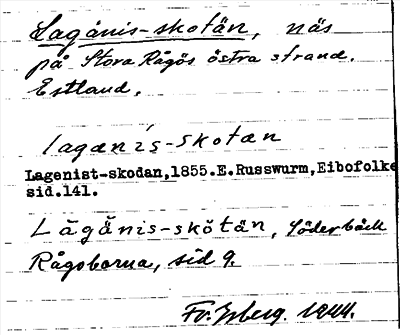 Lagånis-skotän, näs
på Stora Rågös östra strand.
Estland.
lagænis-skotæn
Lagenist-skodan,1855.E.Russwurm,Eibofolke
sid.141.
Lăgånis-skŏtän, Söderbäck
Rågöborna, sid 9.
Fr. Isberg. 1944.